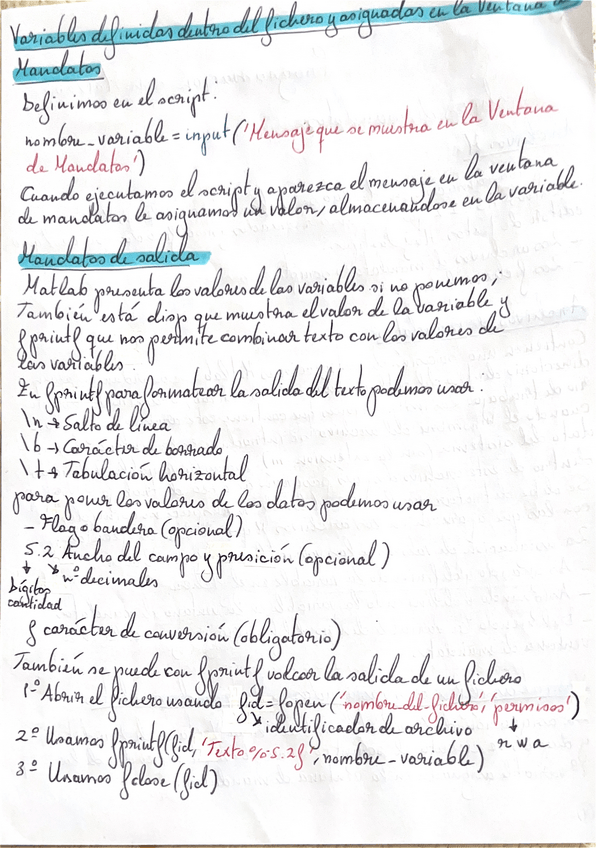 Variables definidas dentro del fichero y asignadas en la Ventana de
Mandatos
Definimos en el script:
nombre_variable = input('Mensaje que se muestra en la Ventana
de Mandatos')
Cuando ejecutamos el script y aparezca el mensaje en la ventana
de mandatos le asignamos un valor, almacenandose en la variable.
Mandatos de salida
Matlab presenta los valores de las variables si no ponemos ;
También está disp que muestra el valor de la variable y
fprintf que nos permite combinar texto con los valores de
las variables.
En fprintf para formatear la salida del texto podemos usar:
\n → Salto de línea
\b → Carácter de borrado
\t → Tabulación horizontal
para poner los valores de los datos podemos usar
- Flag o bandera (opcional)
5.2 Ancho del campo y presición (opcional)
↓ ↘ nº decimales
Dígitos
cantidad
f carácter de conversión (obligatorio)
También se puede con fprintf volcar la salida de un fichero
1º Abrir el fichero usando fid = fopen('nombre del fichero', 'permisos')
↘ identificador de archivo ↓
r w a
2º Usamos fprintf(fid, 'Texto %5.2f', nombre_variable)
3º Usamos fclose(fid)